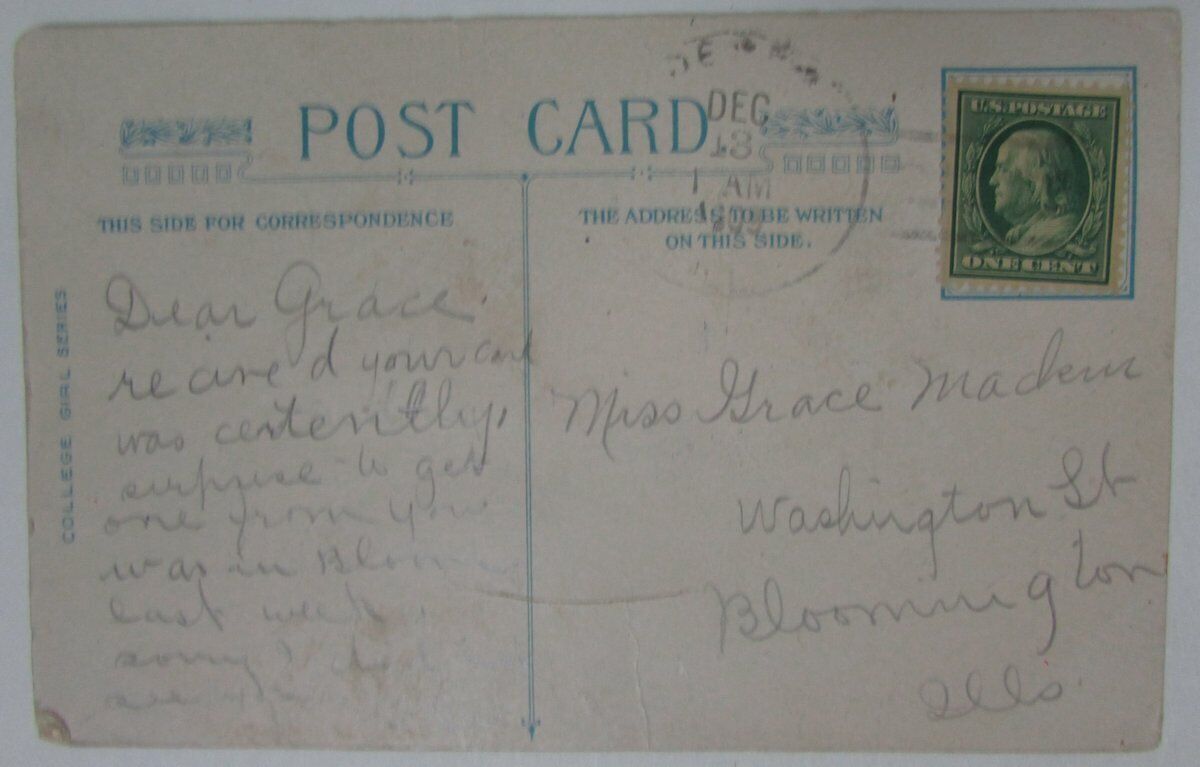 POST CARD
DEC
13
1 AM
THIS SIDE FOR CORRESPONDENCE
THE ADDRESS TO BE WRITTEN
ON THIS SIDE.
U.S. POSTAGE
ONE CENT
COLLEGE GIRL SERIES
Dear Grace.
recived your card
was certently
surprise to get
one from you
was in Bloom
last week
sorry I did
see
Miss Grace
Washington St
Bloomington
Ills.